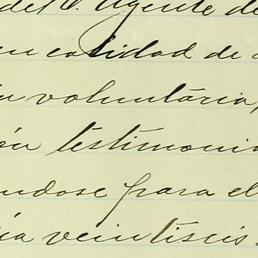 del C. Agente de
en calidad de
voluntaria,
ón testimonia
ndose para el
ca veintiseis